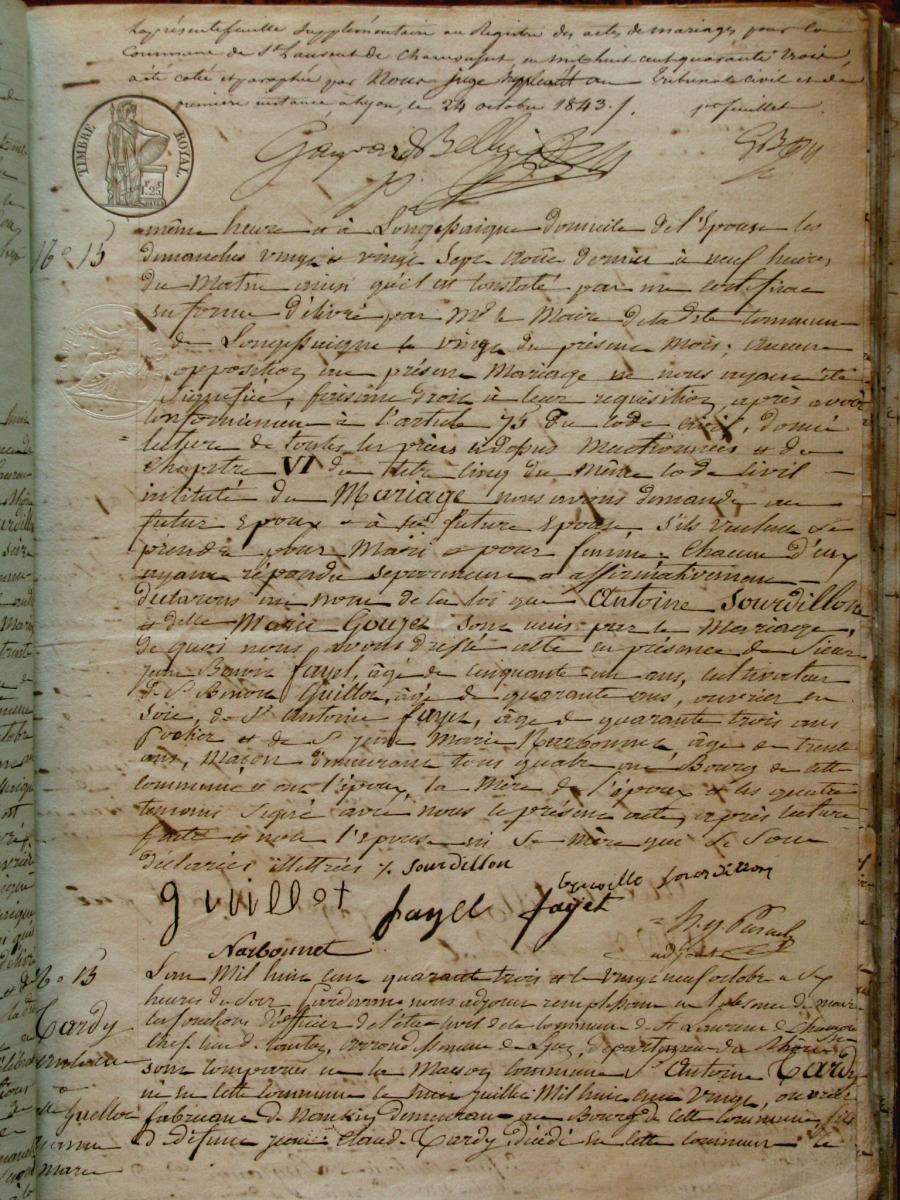 La présente feuille supplémentaire au Registre des actes de mariages pour la
Commune de St Laurent de Chamousset, en mil huit cent quarante trois,
a été cotée et paraphée par Nous Juge suppléant au Tribunal Civil et de
première instance à Lyon, le 24 octobre 1843. 1er feuillet
TIMBRE ROYAL.
1F.25
même heure et à Longessaigne domicile de l'Epouse les
dimanches vingt et vingt sept Août dernier à neuf heures
du Matin ainsi qu'il est constaté par un certificat
en forme délivré par Mr le Maire de la dite Commune
de Longessaigne le vingt du présent mois; aucune
opposition au présent Mariage ne nous ayant été
signifiée, faisant droit à leur requisition, après avoir
conformement à l'article 75 du code civil, donné
lecture de toutes les pièces ci dessus mentionnées et du
chapitre VI du titre cinq du même code Civil
intitulé du Mariage nous avons demandé au
futur epoux et à la future epouse, s'ils veulent se
prendre pour Mari et pour femme: Chacun d'eux
ayant répondu séparément et affirmativement
déclarons au nom de la loi que Antoine Sourdillon
et delle Marie Goujet sont unis par le Mariage,
de quoi nous avons dressé acte en présence de Sieur
jean Benoit fayel, âgé de cinquante un ans, cultivateur
de St Benoit Guillot, âgé de quarante ans, ouvrier en
Soie, de St antoine fayet, âgé de quarante trois ans
et de St jean Marie Narbonnet, âgé de trente
ans, Maçon demeurant tous quatre au Bourg de cette
commune et ont l'époux, la Mère de l'époux et les quatre
temoins signé avec nous le présent acte, après lecture
faite et non l'Epouse ni Sa Mère qui Se Sont
déclarées illettrées. Sourdillon
guillot fayel fayet
adjoint
Narbonnet
No 15
L'an Mil huit cent quarante trois et le vingt neuf octobre à Six
heures du Soir Pardevant nous adjoint remplissant en l'absence du maire
les fonctions d'officier de l'état civil de la commune de St Laurent de Chamousset
chef lieu de Canton, arrondissement de Lyon, département du Rhône
sont comparus en la Maison commune St Antoine Tardy
né en cette commune le huit juillet Mil huit cent vingt, ouvrier
fabriquant de nankin demeurant au Bourg de cette commune fils
de Défunt jean Claude Tardy, décédé en cette commune le
Tardy
antoine
et
Guillot
marie